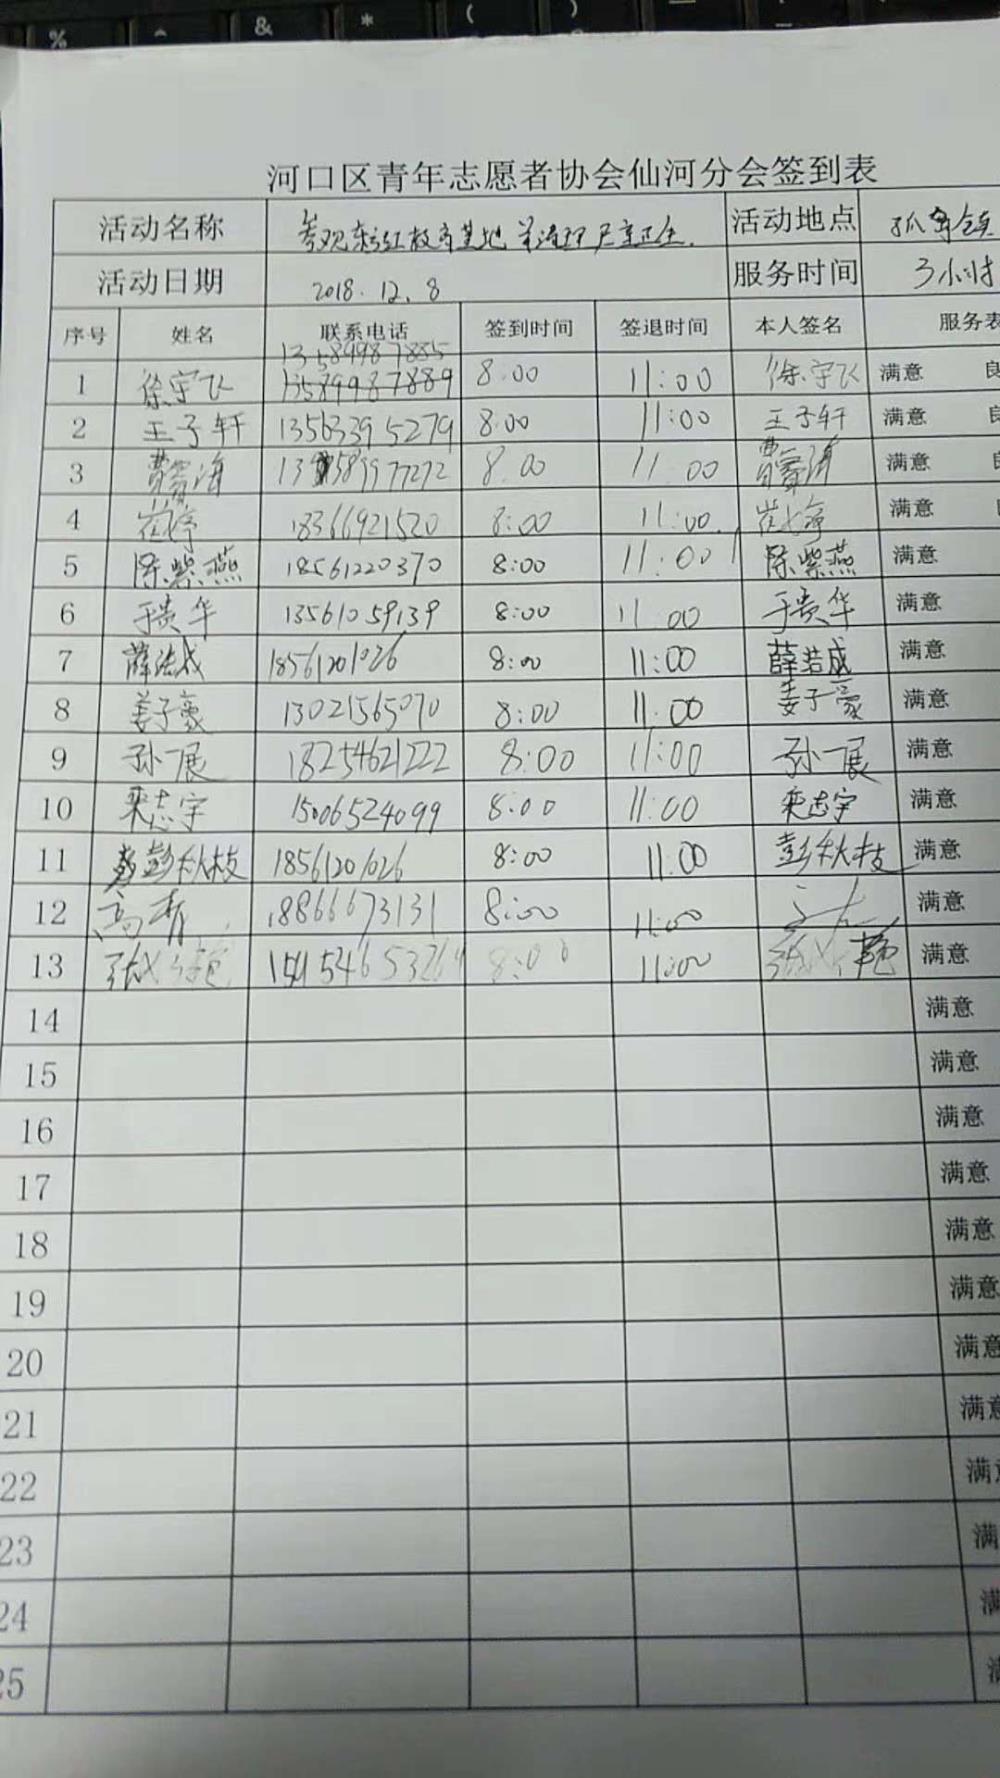 % ^ & * ( )
河口区青年志愿者协会仙河分会签到表
活动名称 参观东方红教育基地 并清理 卫生 活动地点 孤岛镇
活动日期 2018.12.8 服务时间 3小时
序号 姓名 联系电话 签到时间 签退时间 本人签名 服务表
13589987885
1 徐宇飞 13589987889 8:00 11:00 徐宇飞 满意 良
2 王子轩 13563395279 8:00 11:00 王子轩 满意 良
3 8:00 11:00 满意 良
4 崔婷 18366921520 8:00 11:00 崔婷 满意
5 陈紫燕 18561220370 8:00 11:00 陈紫燕 满意
6 于贵华 13561059139 8:00 11:00 于贵华 满意
7 薛浩成 18561201026 8:00 11:00 薛浩成 满意
8 姜子豪 13021565070 8:00 11:00 姜子豪 满意
9 孙一展 18254621222 8:00 11:00 孙一展 满意
10 栾志宇 15006524099 8:00 11:00 栾志宇 满意
11 彭秋枝 18561201026 8:00 11:00 彭秋枝 满意
12 高青 18866673131 8:00 11:00 满意
13 8:00 11:00 满意
14 满意
15 满意
16 满意
17 满意
18 满意
19 满意
20 满意
21 满意
22 满意
23 满
24 满
25 满